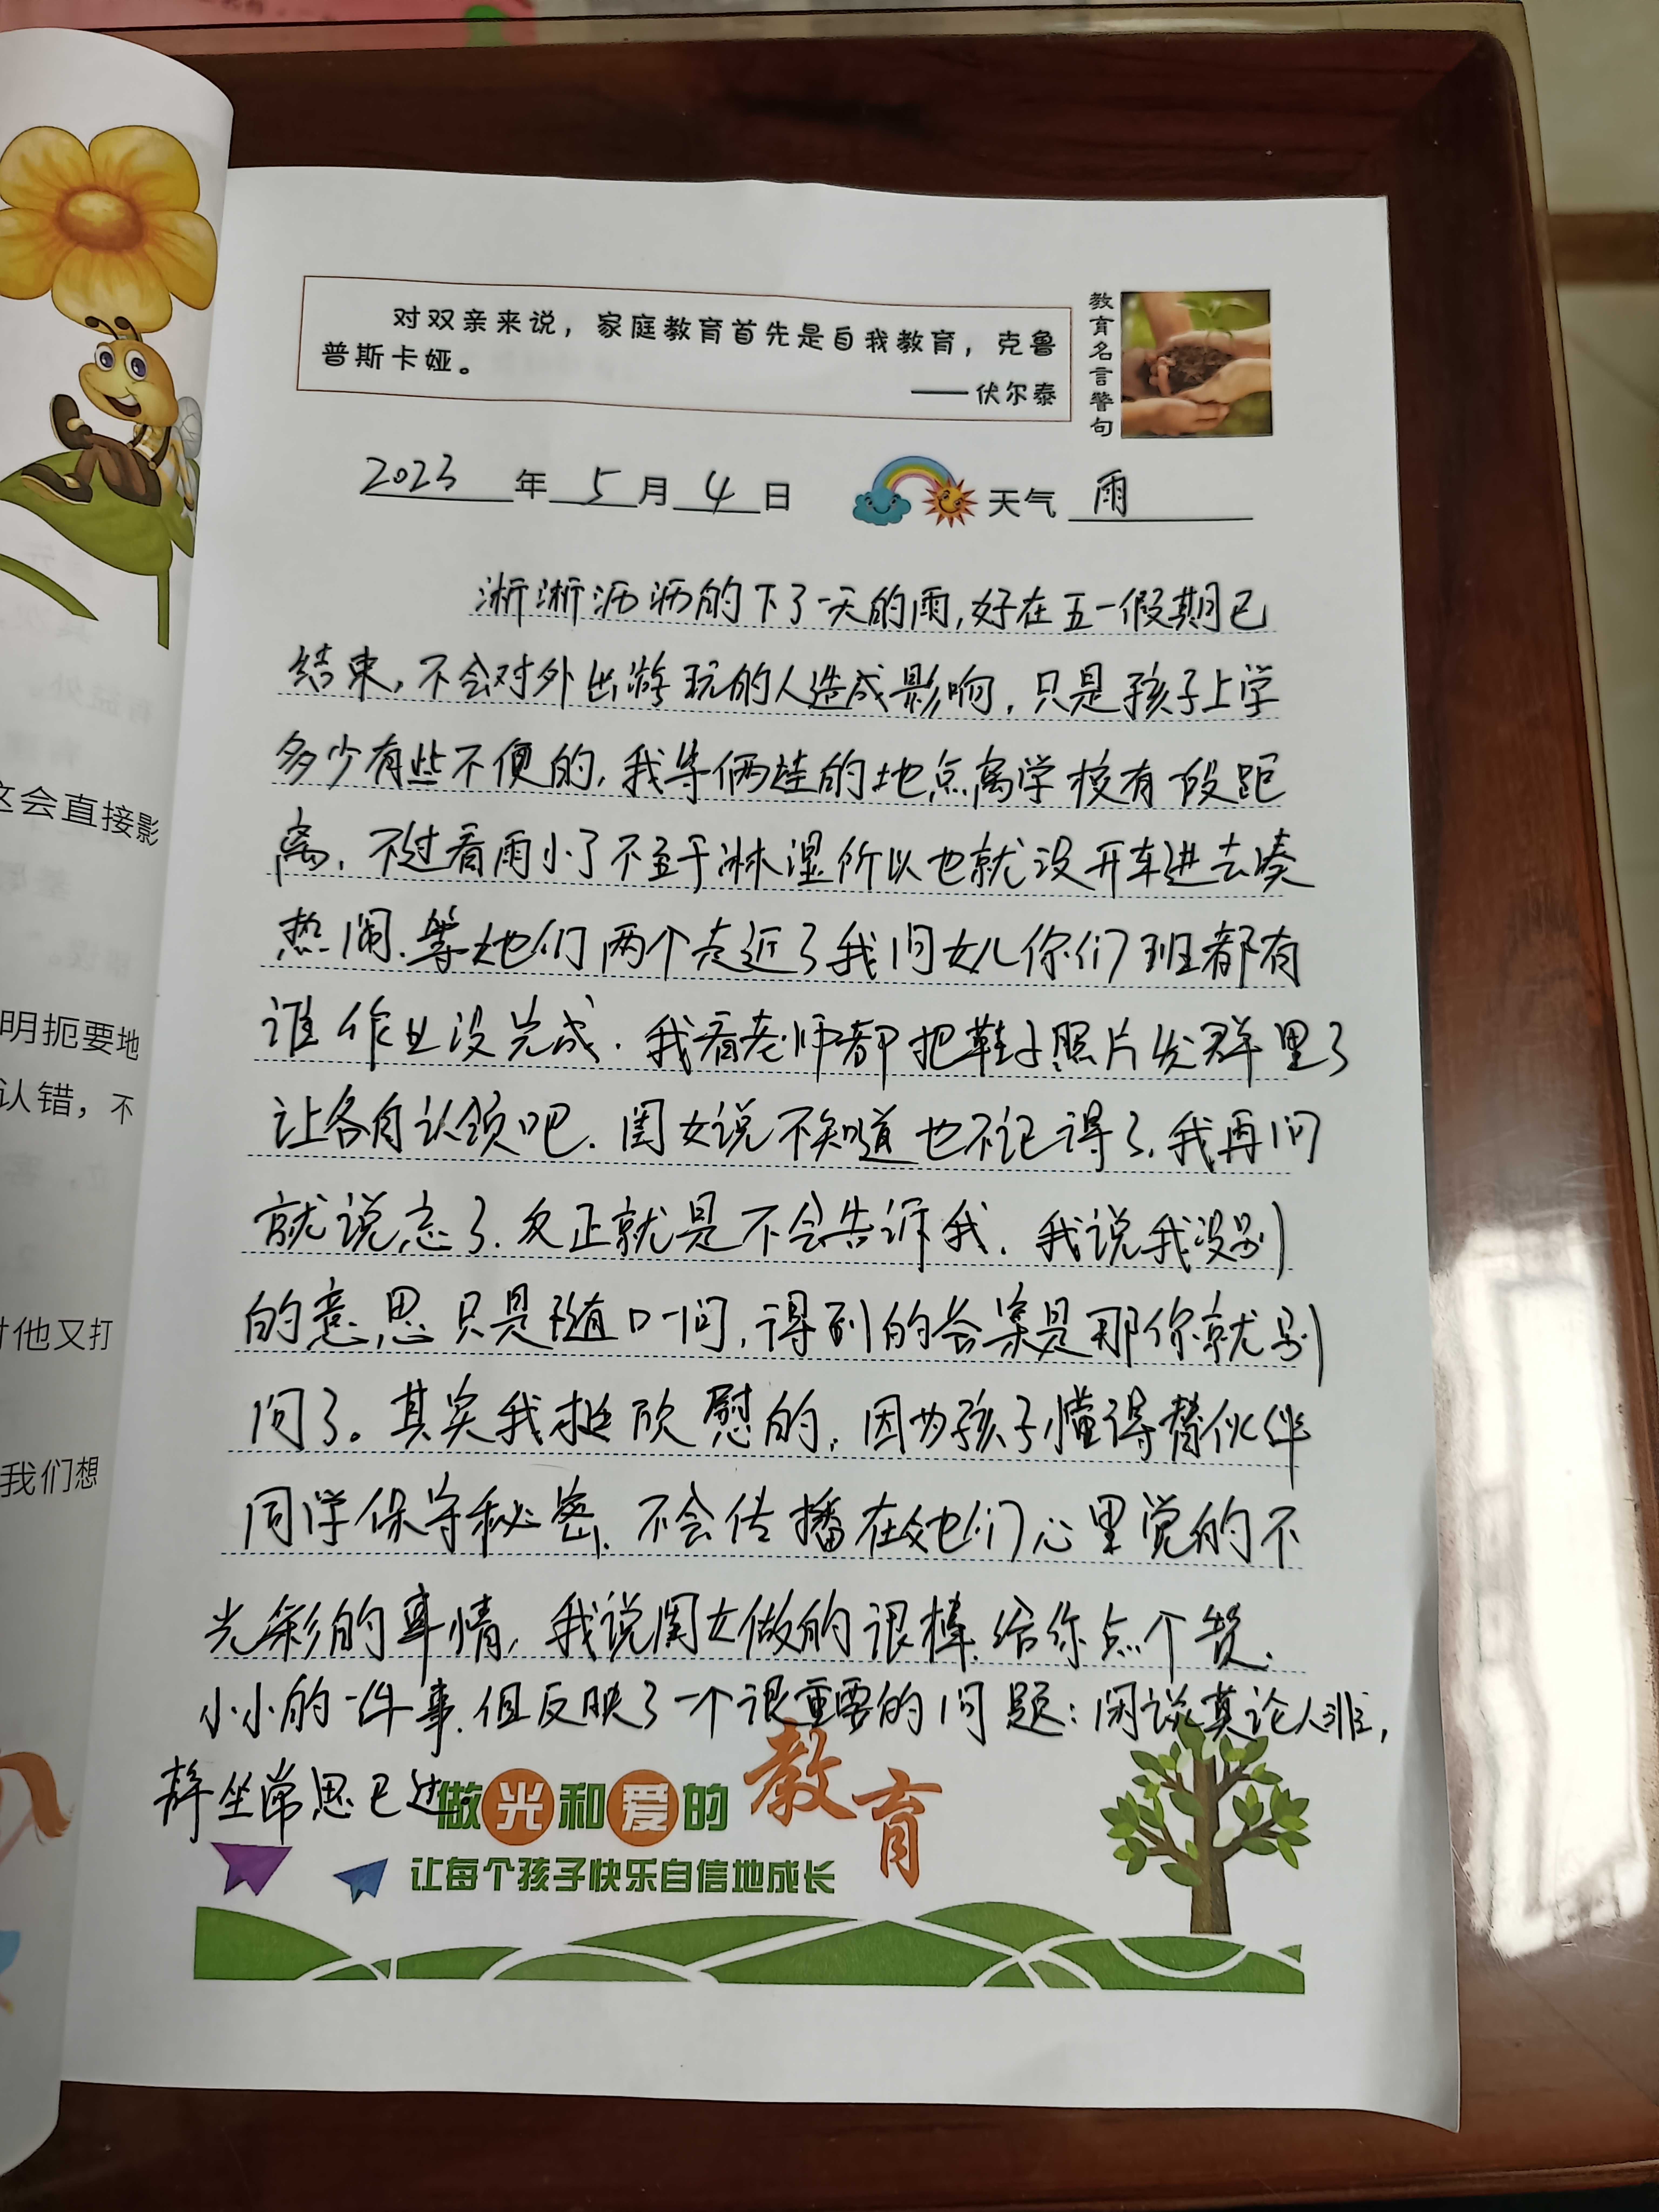 对双亲来说，家庭教育首先是自我教育，克鲁
普斯卡娅。
——伏尔泰
教育名言警句
2023年5月4日 天气 雨
淅淅沥沥的下了一天的雨，好在五一假期已
结束，不会对外出游玩的人造成影响，只是孩子上学
多少有些不便的，我等俩娃的地点离学校有段距
离，不过看雨小了不至于淋湿所以也就没开车进去凑
热闹.等她们两个走近了我问女儿你们班都有
谁作业没完成.我看老师都把鞋子照片发群里了
让各自认领吧.闺女说不知道也不记得了.我再问
就说忘了.反正就是不会告诉我.我说我没别
的意思只是随口一问,得到的答案是那你就别
问了。其实我挺欣慰的，因为孩子懂得替伙伴
同学保守秘密.不会传播在她们心里觉的不
光彩的事情，我说闺女做的很棒.给你点个赞.
小小的一件事.但反映了一个很重要的问题：闲谈莫论人非，
静坐常思己过。
做光和爱的教育
让每个孩子快乐自信地成长
这会直接影
明扼要地
认错，不
他又打
我们想